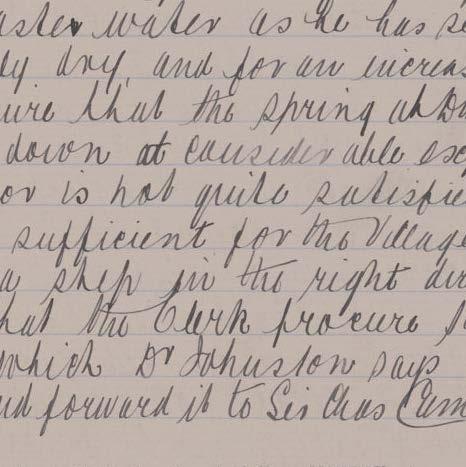 aste water as he has se
ly dry, and for an increas
ure that the spring at Du
down at considerable exp
or is not quite satisfie
sufficient for the Village
a step in the right dir
hat the Clerk procure
which Dr Johnston says
nd forward it to Sir Chas Cam